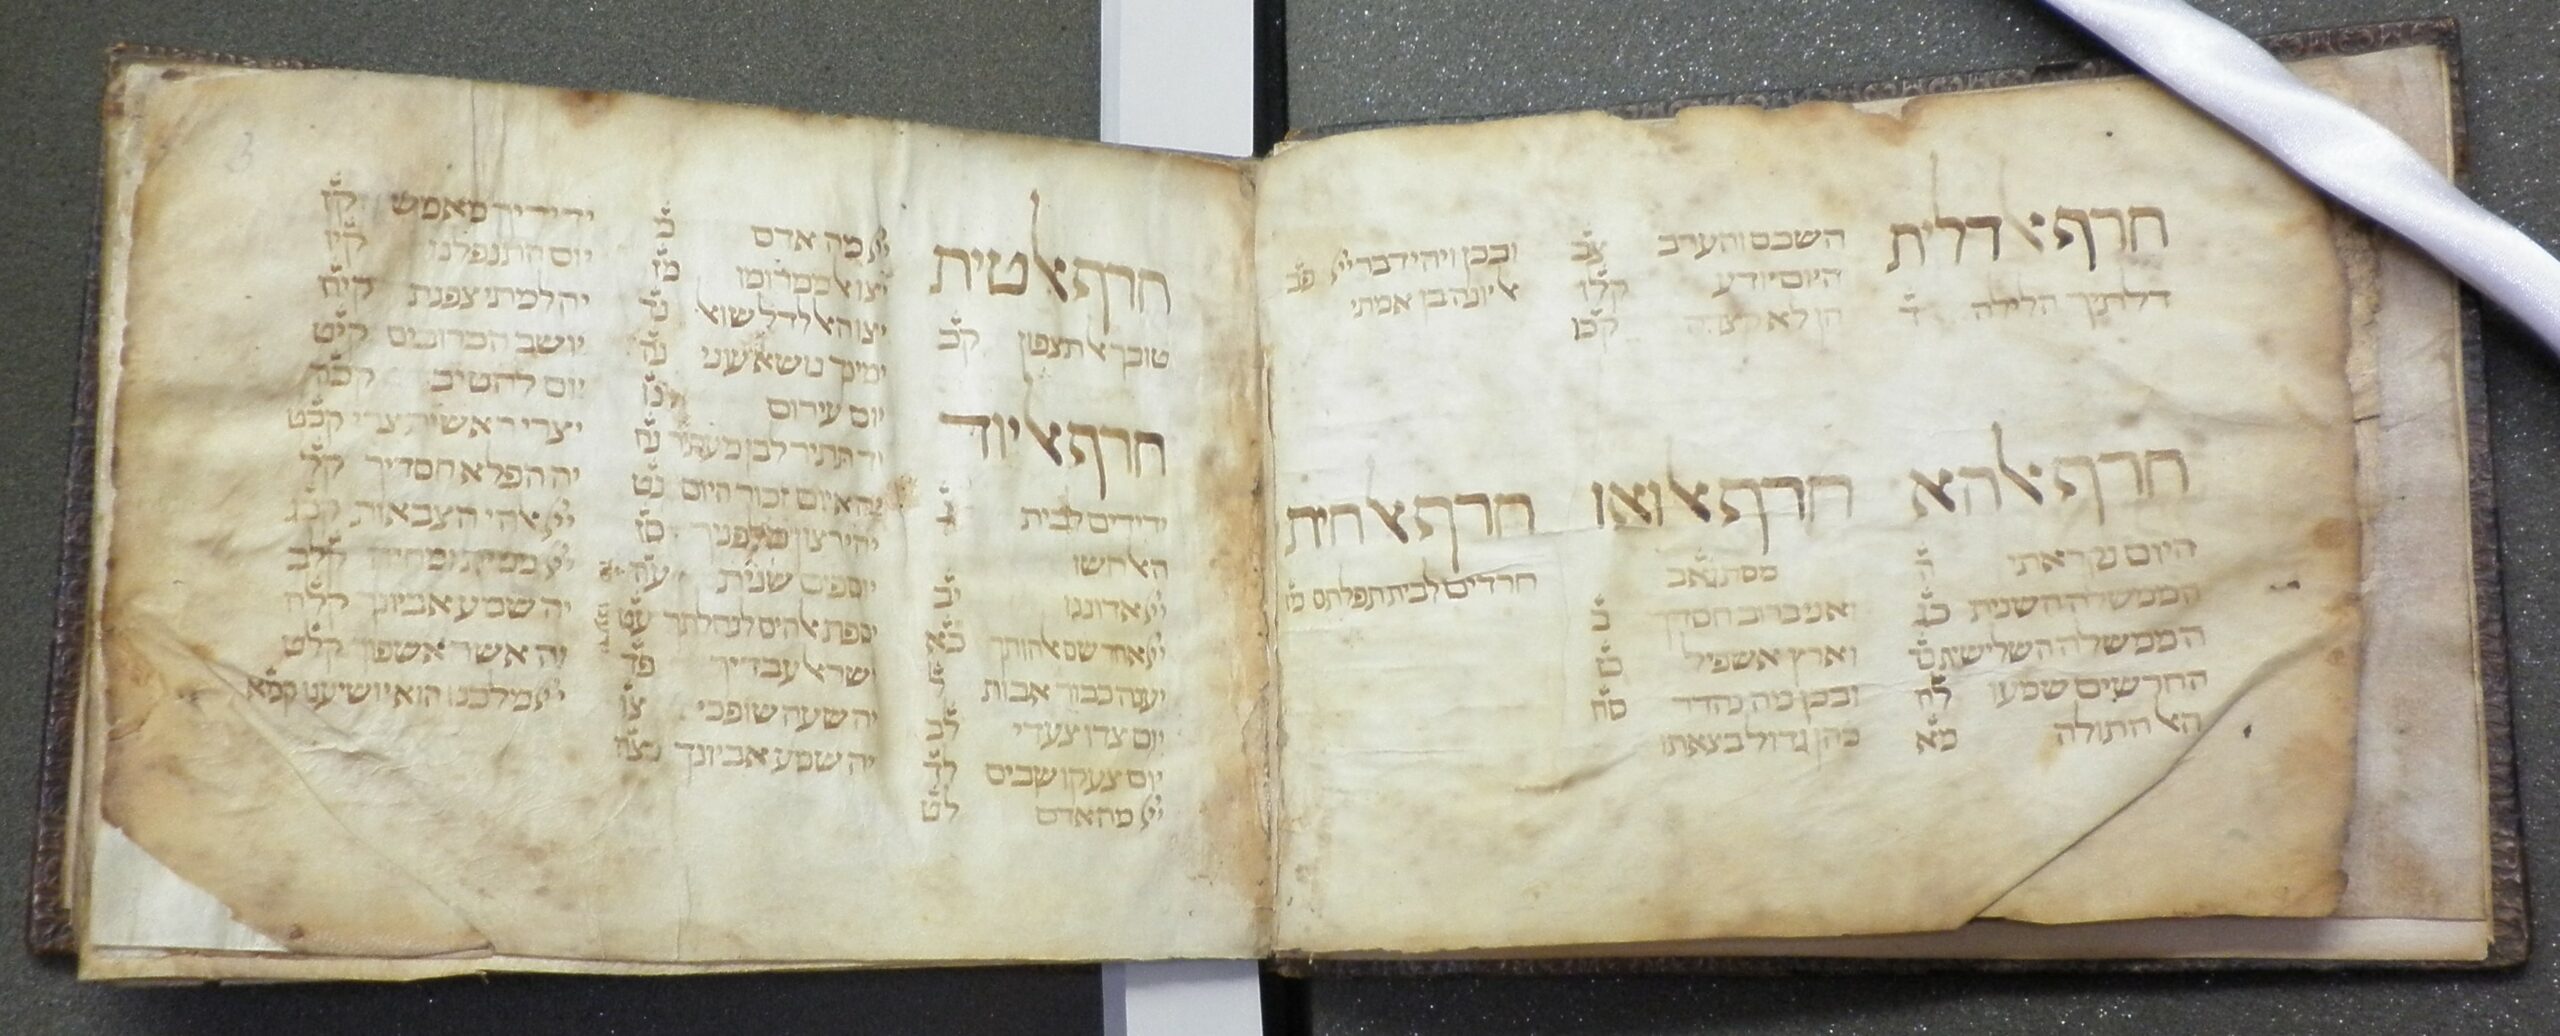 חרף אל דלית
דלתיך הלילה ד
השכם והערב צב
היום יודע קלו
הן לא קכו
ובכן ויהי דבר ייי פב
אל יונה בן אמתי
חרף אל הא
היום נקראתי ה
הממשלה השנית כג
הממשלה השלישית
החרשים שמעו לח
האל התולה מא
חרף אל ואו
ואני ברוב חסדך
וארץ אשפיל ס
ובכן מה נהדר סח
כהן גדול בצאתו
חרף אל חית
חרדים לבית תפלתם מז
חרף אל טית
טובך אל תצפון קכ
חרף אל יוד
ידידים לבית
האל חשו
ייי אדוננו יב
ייי אחד שם אלהותך כא
יענה כבור אבות
יום צדו צעדי לב
יום צעקו שבים לד
ייי מה אדם לט
ייי מה אדם נ
יצו אל ממרומו מז
יצו האל לדל שואל נד
ימינך נושא עוני נה
יום עירום נז
יד תתיר לבן נח
יה איום זכור היום נט
יהי רצון מלפניך סו
יוספים שנית עה
יספת אלהים לנחלתך עט
ישראל עבדיך פד
יה שעה שופכי צו
יה שמע אביונך צח
ידידיך מאמש קז
יום התנפלנו קיו
יה למתי צפנת קיח
יושב הכרובים קיט
יום להטיב קכד
יצרי ראשית צרי קכט
יה הפלא חסדיך קל
ייי אלהי הצבאות
ייי ממית ומחיה קלב
יה שמע אביונך קלח
יה אשר אשפון קלט
ייי מלכנו הוא יושיענו קמא